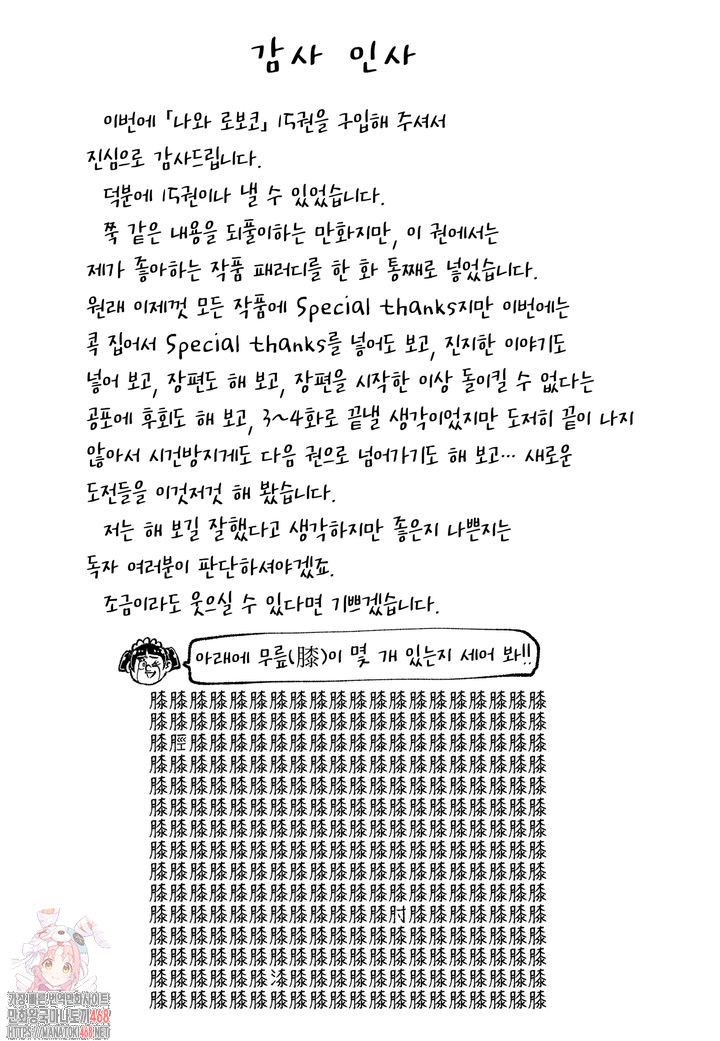 감사 인사
이번에 「나와 로보코」 15권을 구입해 주셔서
진심으로 감사드립니다.
덕분에 15권이나 낼 수 있었습니다.
쭉 같은 내용을 되풀이하는 만화지만, 이 권에서는
제가 좋아하는 작품 패러디를 한 화 통째로 넣었습니다.
원래 이제껏 모든 작품에 Special thanks지만 이번에는
콕 집어서 Special thanks를 넣어도 보고, 진지한 이야기도
넣어 보고, 장편도 해 보고, 장편을 시작한 이상 돌이킬 수 없다는
공포에 후회도 해 보고, 3~4화로 끝낼 생각이었지만 도저히 끝이 나지
않아서 시건방지게도 다음 권으로 넘어가기도 해 보고… 새로운
도전들을 이것저것 해 봤습니다.
저는 해 보길 잘했다고 생각하지만 좋은지 나쁜지는
독자 여러분이 판단하셔야겠죠.
조금이라도 웃으실 수 있다면 기쁘겠습니다.
아래에 무릎(膝)이 몇 개 있는지 세어 봐!!
膝膝膝膝膝膝膝膝膝膝膝膝膝膝膝膝膝膝膝膝
膝膝膝膝膝膝膝膝膝膝膝膝膝膝膝膝膝膝膝膝
膝脛膝膝膝膝膝膝膝膝膝膝膝膝膝膝膝膝膝膝
膝膝膝膝膝膝膝膝膝膝膝膝膝膝膝膝膝膝膝膝
膝膝膝膝膝膝膝膝膝膝膝膝膝膝膝膝膝膝膝膝
膝膝膝膝膝膝膝膝膝膝膝膝膝膝膝膝膝膝膝膝
膝膝膝膝膝膝膝膝膝膝膝膝膝膝膝膝膝膝膝膝
膝膝膝膝膝膝膝膝膝膝膝膝膝膝膝膝膝膝膝膝
膝膝膝膝膝膝膝膝膝膝膝膝膝膝膝膝膝膝膝膝
膝膝膝膝膝膝膝膝膝膝膝膝膝膝膝膝膝膝膝膝
膝膝膝膝膝膝膝膝膝膝膝膝肘膝膝膝膝膝膝膝
膝膝膝膝膝膝膝膝膝膝膝膝膝膝膝膝膝膝膝膝
膝膝膝膝膝膝膝膝膝膝膝膝膝膝膝膝膝膝膝膝
膝膝膝膝膝膝漆膝膝膝膝膝膝膝膝膝膝膝膝膝
膝膝膝膝膝膝膝膝膝膝膝膝膝膝膝膝膝膝膝膝
가장빠른번역만화사이트!
만화왕국마나토끼468
HTTPS://MANATOKI468.NET